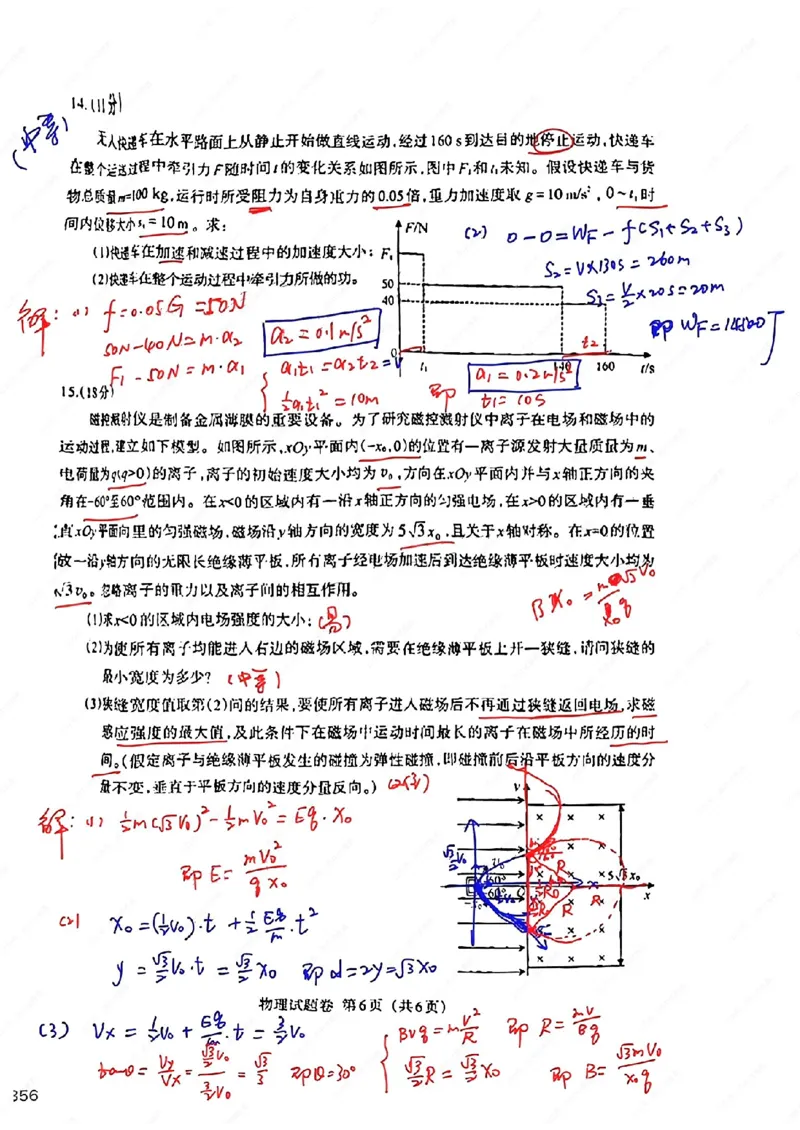 14.(11分)
(中等)
无人快递车在水平路面上从静止开始做直线运动,经过160 s到达目的地停止运动,快递车
在整个运送过程中牵引力F随时间t的变化关系如图所示,图中F₁和t₁未知。假设快递车与货
物总质量m=100 kg,运行时所受阻力为自身重力的0.05倍,重力加速度取g=10 m/s²,0~t₁时
间内位移大小s₁=10m。求:
(1)快递车在加速和减速过程中的加速度大小;
(2)快递车在整个运动过程中牵引力所做的功。
F/N
F₁
50
40
0
t₁
140
160
t/s
t₂
(2) 0-0=WF-f(S₁+S₂+S₃)
S₂=V×130s=260m
S₃=V/2×20s=20m
即 WF=14500J
解:(1) f=0.05G=50N
50N-40N=m·a₂
a₂=0.1m/s²
F₁-50N=m·a₁
a₁t₁=a₂t₂=V
½a₁t₁²=10m
即
a₁=0.2m/s²
t₁=10s
15.(18分)
磁控溅射仪是制备金属薄膜的重要设备。为了研究磁控溅射仪中离子在电场和磁场中的
运动过程,建立如下模型。如图所示,xOy平面内(-x₀,0)的位置有一离子源发射大量质量为m、
电荷量为q(q>0)的离子,离子的初始速度大小均为v₀,方向在xOy平面内并与x轴正方向的夹
角在-60°至60°范围内。在x<0的区域内有一沿x轴正方向的匀强电场,在x>0的区域内有一垂
直xOy平面向里的匀强磁场,磁场沿y轴方向的宽度为5√3x₀,且关于x轴对称。在x=0的位置
放一沿y轴方向的无限长绝缘薄平板,所有离子经电场加速后到达绝缘薄平板时速度大小均为
√3v₀。忽略离子的重力以及离子间的相互作用。
(1)求x<0的区域内电场强度的大小;
(2)为使所有离子均能进入右边的磁场区域,需要在绝缘薄平板上开一狭缝,请问狭缝的
最小宽度为多少?(中等)
(3)狭缝宽度值取第(2)问的结果,要使所有离子进入磁场后不再通过狭缝返回电场,求磁
感应强度的最大值,及此条件下在磁场中运动时间最长的离子在磁场中所经历的时
间。(假定离子与绝缘薄平板发生的碰撞为弹性碰撞,即碰撞前后沿平板方向的速度分
量不变,垂直于平板方向的速度分量反向。)
解:(1) ½m(√3V₀)²-½mV₀²=Eq·X₀
即E=mV₀²/qx₀
(2) X₀=(½V₀)·t+½Eq/m·t²
y=√3/2V₀·t=√3/2X₀ 即d=2y=√3X₀
y
60°
60°
5√3x₀
x
R
R
物理试题卷 第6页(共6页)
(3) Vx=½V₀+Eq/m·t=3/2V₀
tanθ=Vy/Vx=(√3/2V₀)/(3/2V₀)=√3/3 即θ=30°
BVq=mV²/R 即R=mV/Bq
√3/2R=√3/2X₀ 即B=√3mV₀/x₀q
356